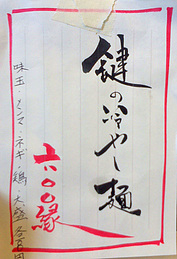 鍵の冷やし麺
六〇〇縁
味玉・メンマ・ネギ・鶏・大盛 各百円